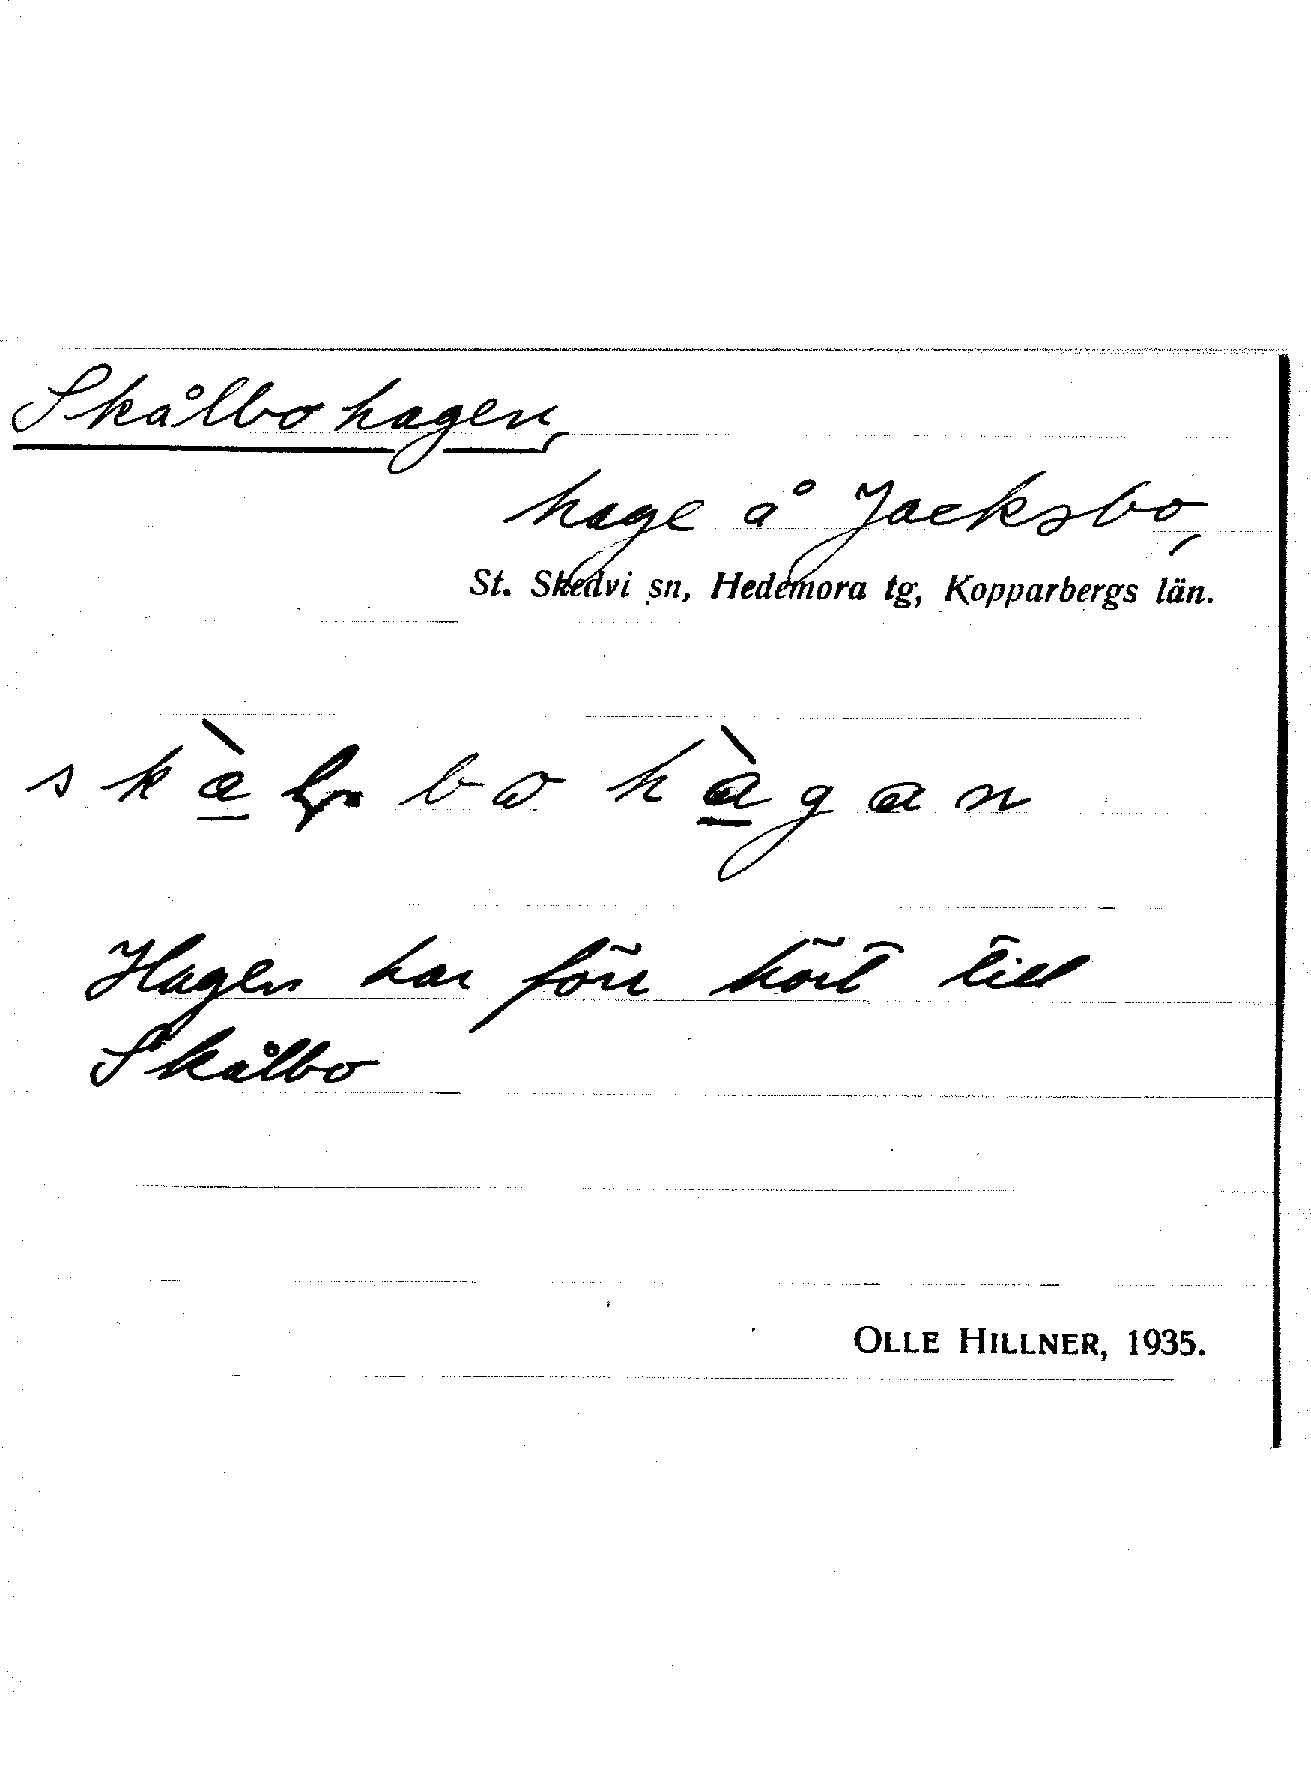 Skålbohagen,
hage å Jacksbo,
St. Skedvi sn, Hedemora tg, Kopparbergs län.
Hagen har förr hört till
Skålbo
OLLE HILLNER, 1935.